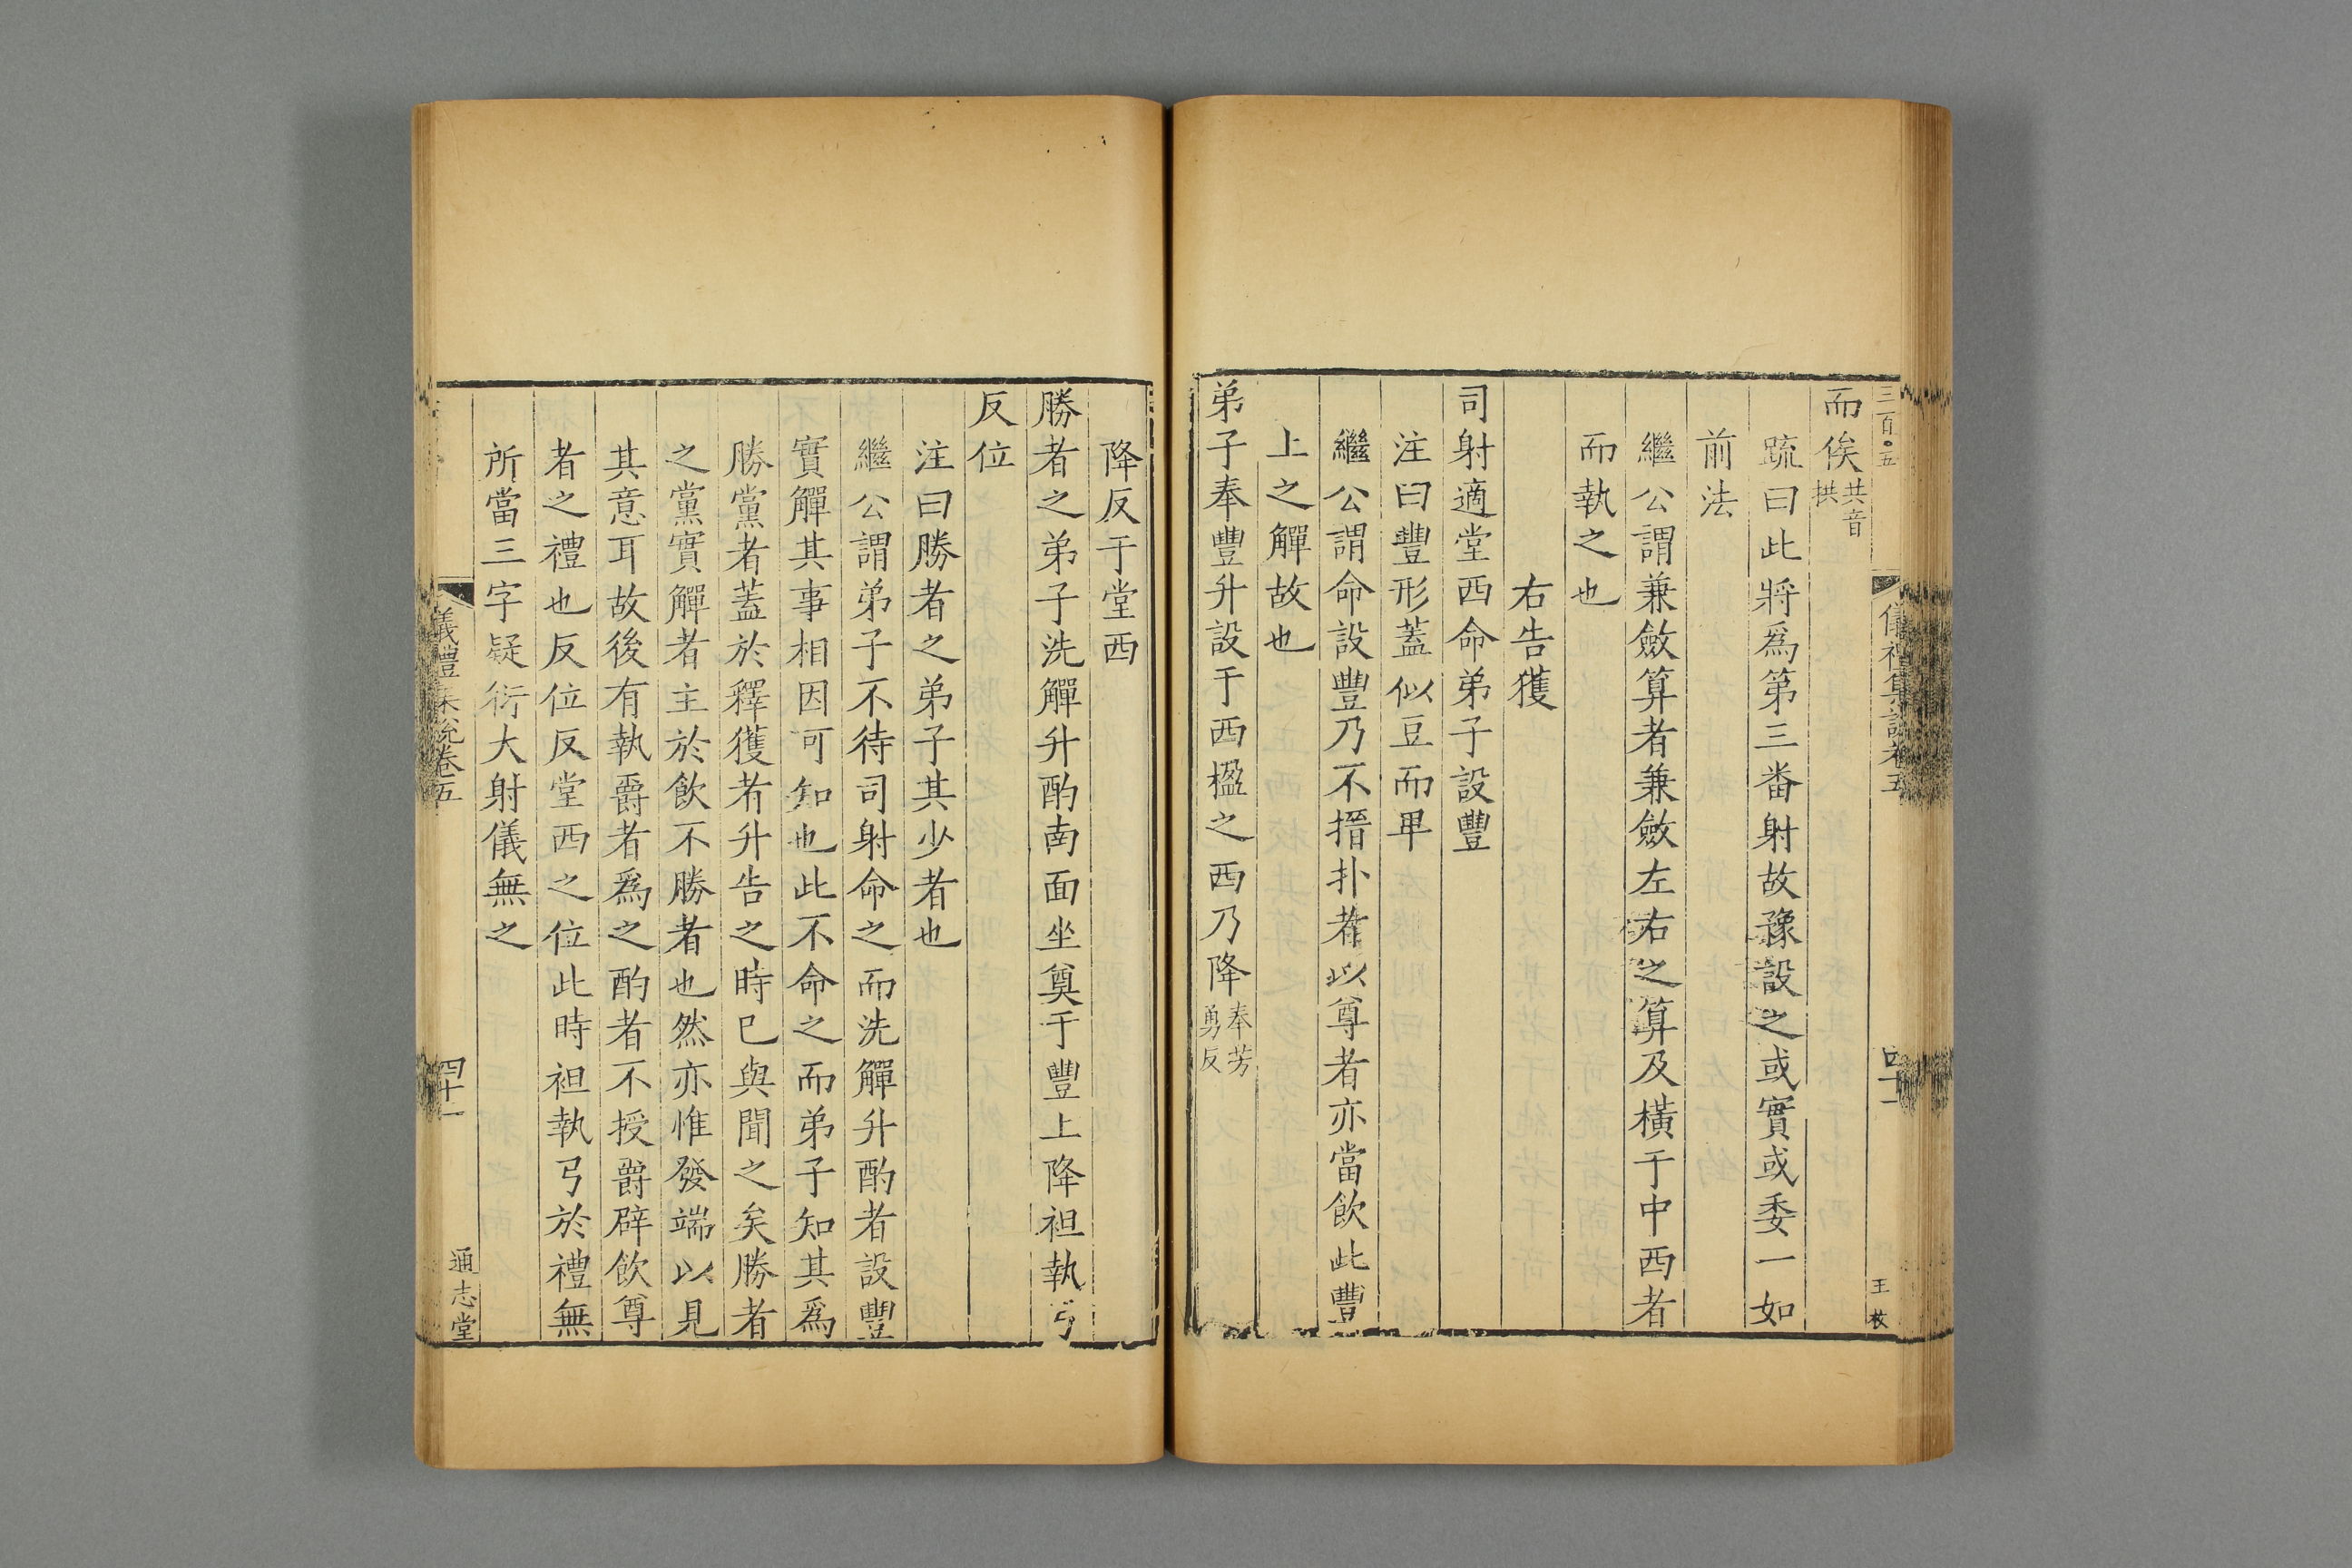 三百〇五
儀禮集說卷五
四十一
王枚
而俟共音拱
疏曰此將爲第三番射故豫設之或實或委一如
前法
繼公謂兼斂算者兼斂左右之算及橫于中西者
而執之也
右告獲
司射適堂西命弟子設豐
注曰豐形蓋似豆而卑
繼公謂命設豐乃不搢扑者以尊者亦當飲此豐
上之觶故也
弟子奉豐升設于西楹之西乃降奉芳勇反
降反于堂西
勝者之弟子洗觶升酌南面坐奠于豐上降袒執弓
反位
注曰勝者之弟子其少者也
繼公謂弟子不待司射命之而洗觶升酌者設豐
實觶其事相因可知也此不命之而弟子知其爲
勝黨者蓋於釋獲者升告之時已與聞之矣勝者
之黨實觶者主於飲不勝者也然亦惟發端以見
其意耳故後有執爵者爲之酌者不授爵辟飲尊
者之禮也反位反堂西之位此時袒執弓於禮無
所當三字疑衍大射儀無之
儀禮集說卷五
四十一
通志堂